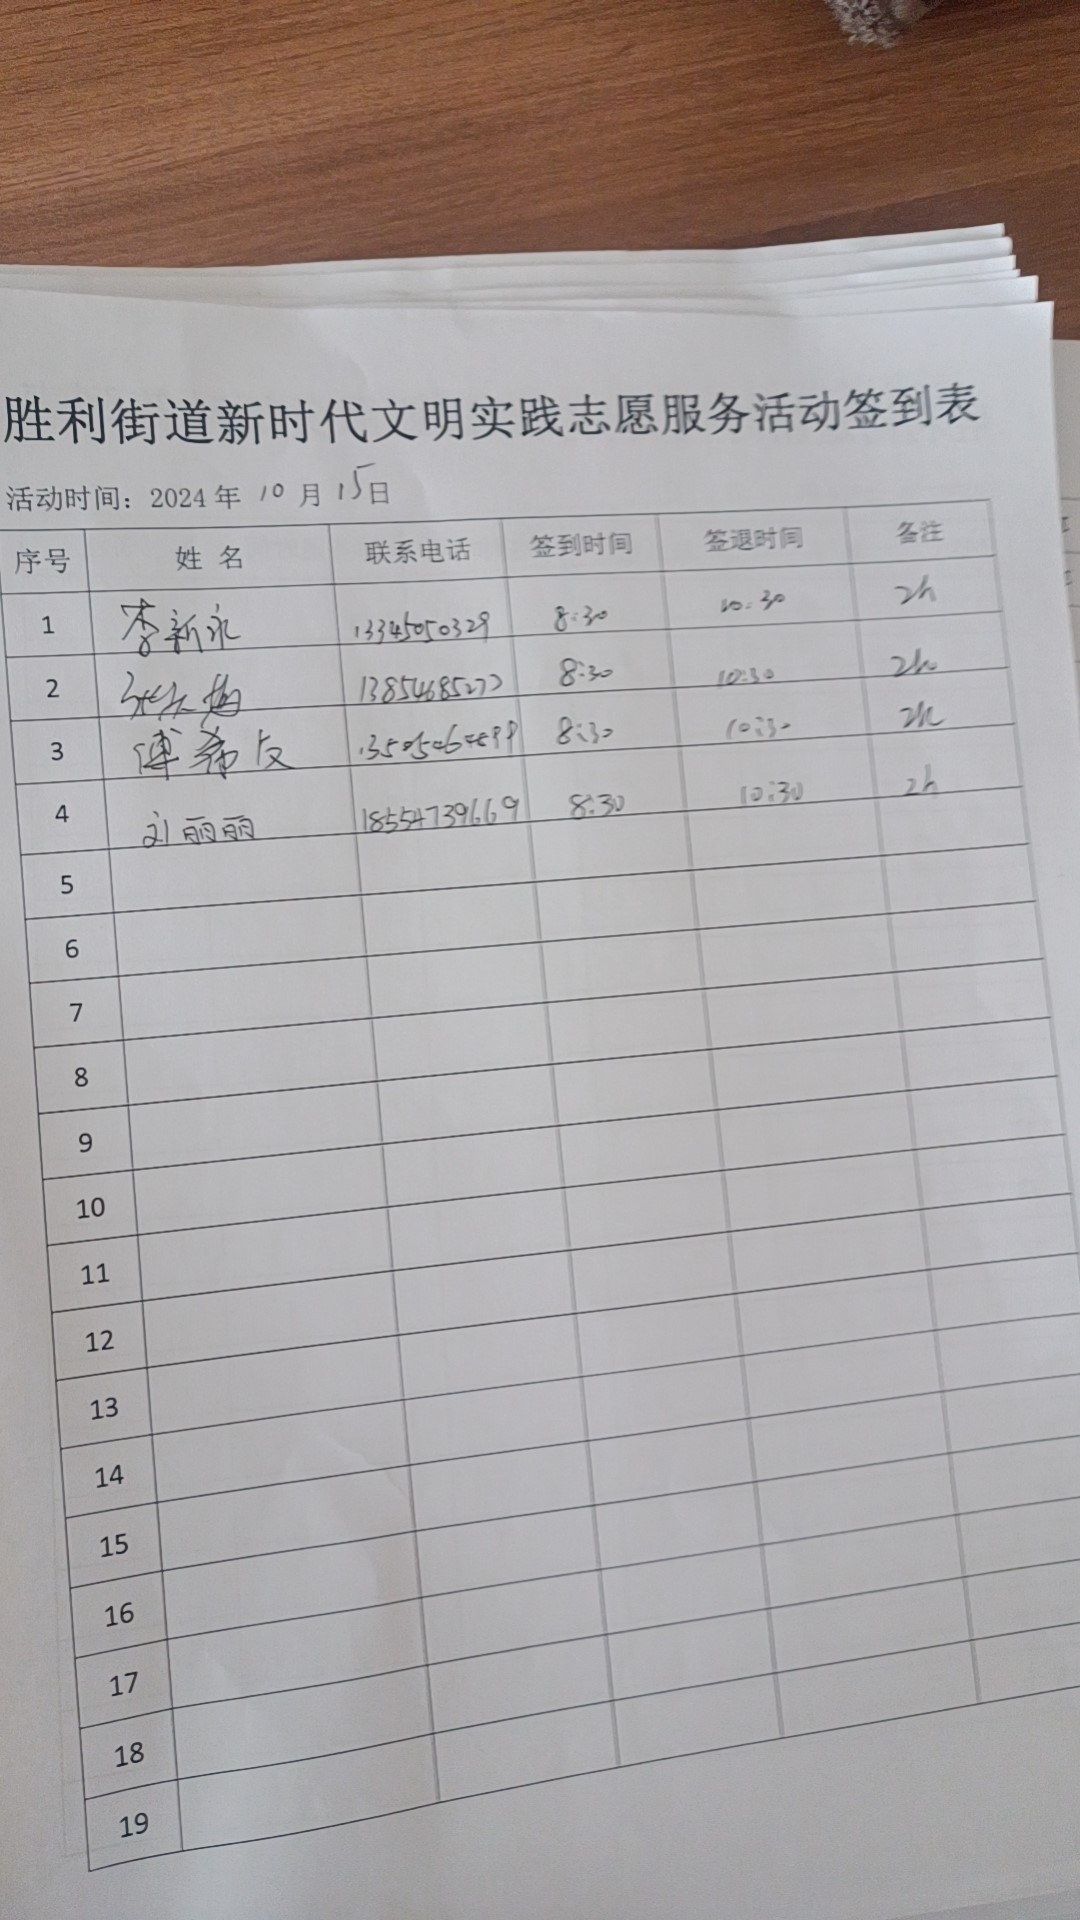 胜利街道新时代文明实践志愿服务活动签到表
活动时间：2024年 10 月 15日
序号 姓 名 联系电话 签到时间 签退时间 备注
1 李新永 13345050329 8:30 10:30 2h
2 13854685277 8:30 10:30 2h
3 傅希友 8:30 10:30 2h
4 刘丽丽 18554739669 8:30 10:30 2h
5
6
7
8
9
10
11
12
13
14
15
16
17
18
19